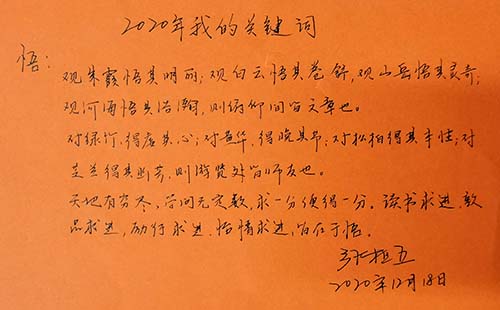 2020年我的关键词
悟:
观朱霞悟其明丽;观白云悟其卷舒,观山岳悟其灵奇;
观河海悟其浩瀚,则俯仰间皆文章也。
对绿竹,得虚其心;对黄华,得晚其节;对松柏得其本性;对
芝兰得其幽芳,则游览处皆师友也。
天地有穷尽,学问无定数,求一分便得一分。读书求进,敦
品求进,励行求进,怡情求进,皆在于悟。
张桓五
2020年12月18日